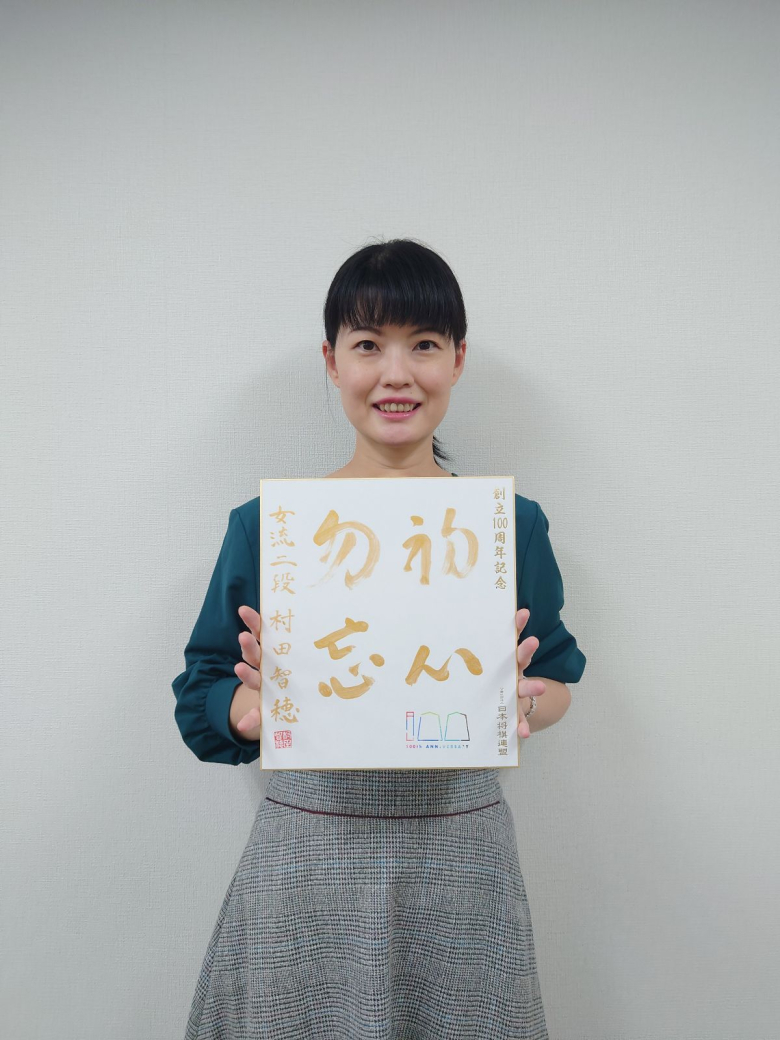 創立100周年記念
初心
勿忘
女流二段 村田智穂
100TH ANNIVERSARY
日本将棋連盟